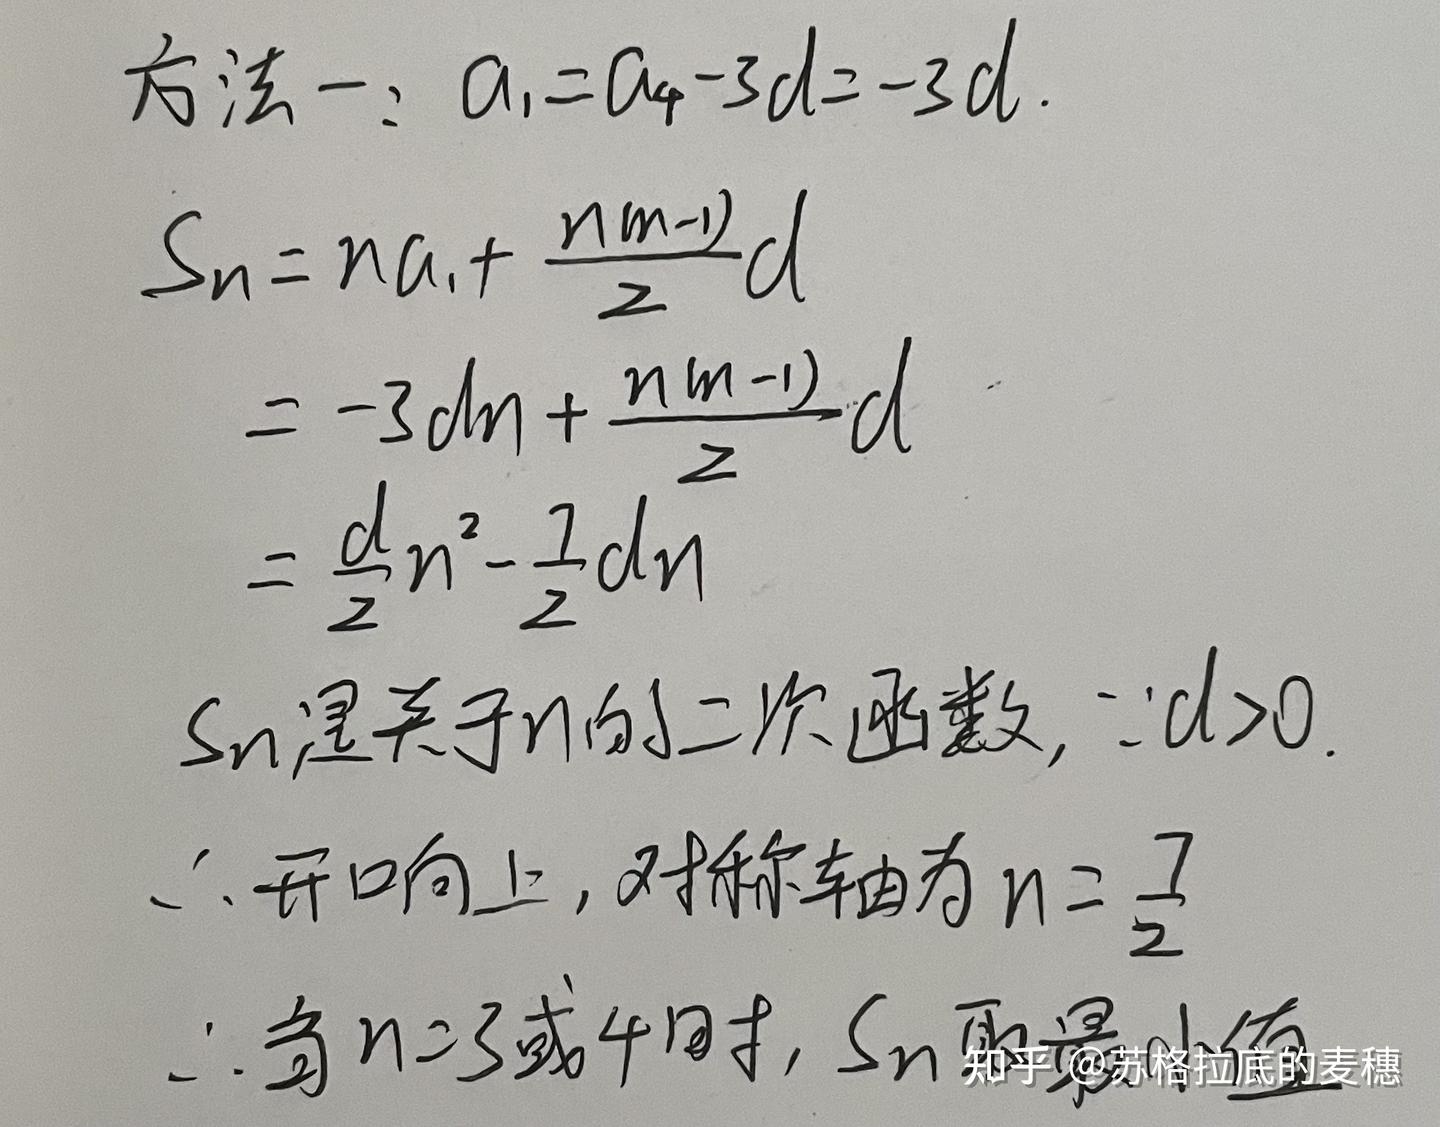 方法一: a₁=a₄-3d=-3d.
Sn=na₁+\frac{n(n-1)}{2}d
=-3dn+\frac{n(n-1)}{2}d
=\frac{d}{2}n²-\frac{7}{2}dn
Sn是关于n的二次函数, ∵d>0.
∴开口向上, 对称轴为n=\frac{7}{2}
∴当n=3或4时, Sn取最小值
知乎 @苏格拉底的麦穗